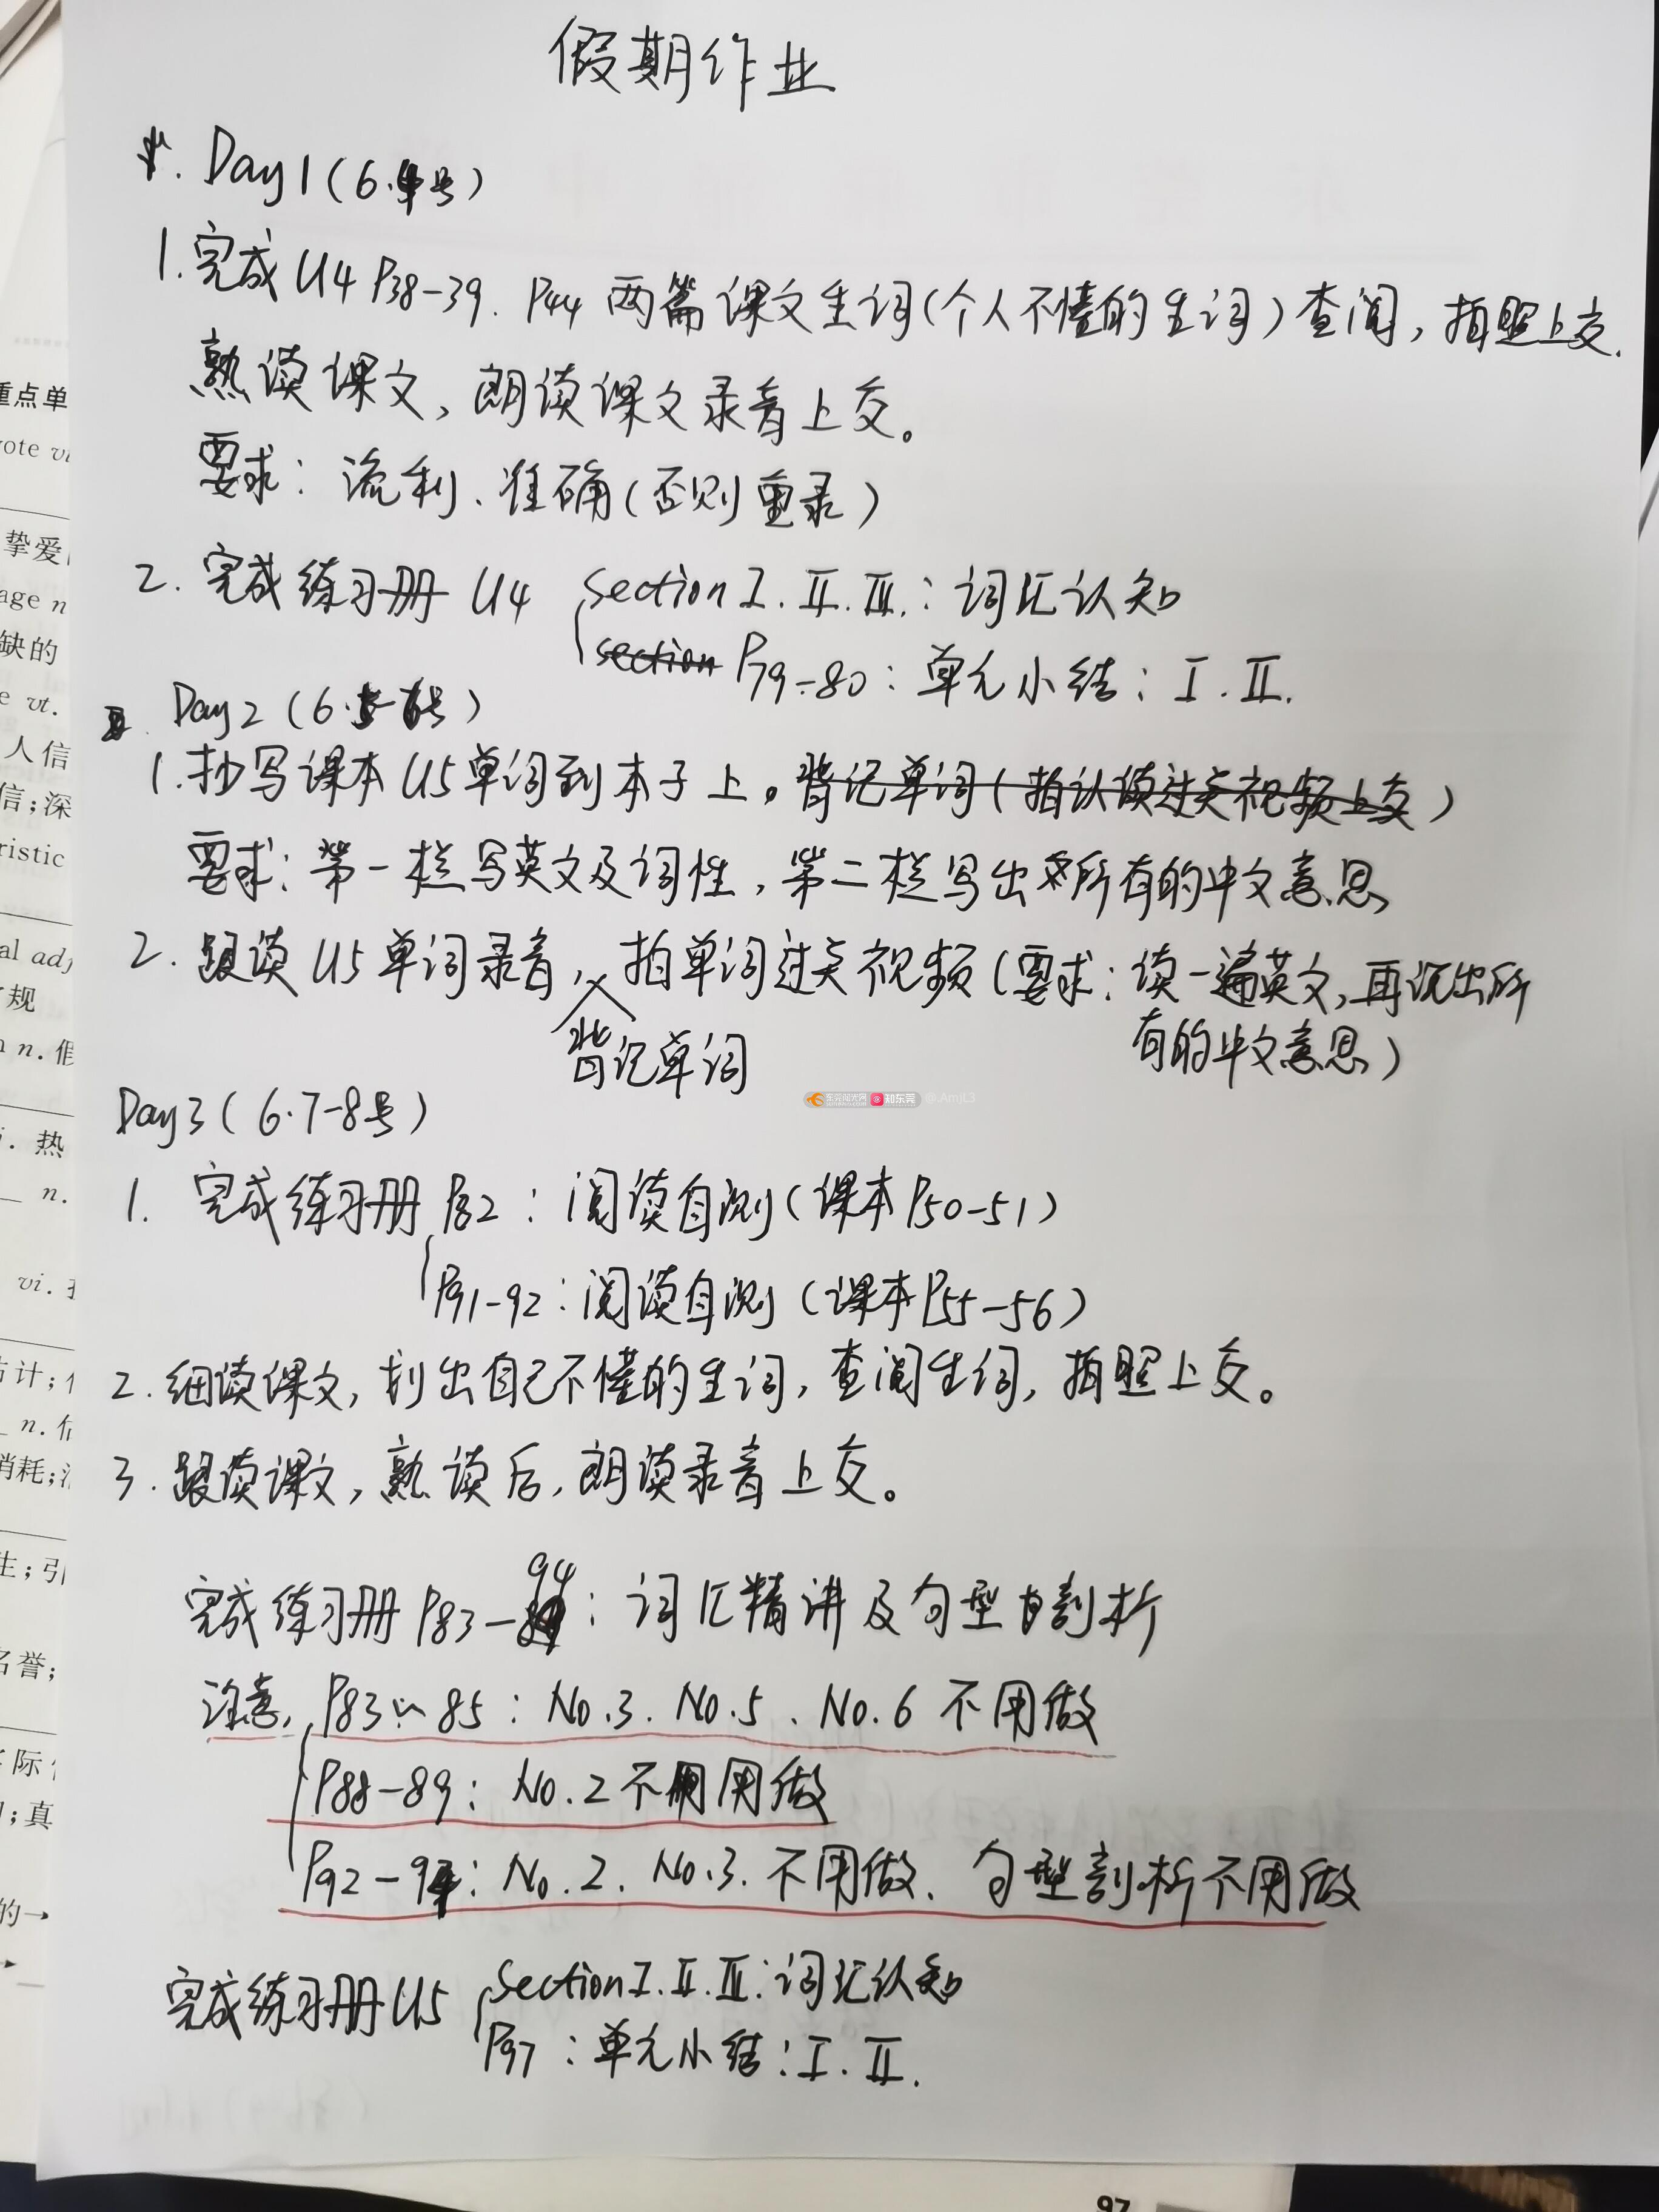 假期作业
Day1(6.4号)
1.完成U4 P38-39. P44 两篇课文生词(个人不懂的生词)查阅,拍照上交.
熟读课文,朗读课文录音上交。
要求:流利、准确(否则重录)
2.完成练习册 U4 Section I.II.III.:词汇认知
section P79-80:单元小结:I.II.
Day2(6.5-6号)
1.抄写课本U5单词到本子上。背记单词(拍认读过关视频上交)
要求:第一栏写英文及词性,第二栏写出所有的中文意思
2.跟读U5单词录音,拍单词过关视频(要求:读一遍英文,再说出所
背记单词
有的中文意思)
东莞阳光网 知东莞 @.AmjL3
Day3(6.7-8号)
1.完成练习册 P82:阅读自测(课本P50-51)
P91-92:阅读自测(课本P55-56)
2.细读课文,划出自己不懂的生词,查阅生词,拍照上交。
3.跟读课文,熟读后,朗读录音上交。
完成练习册P83-94:词汇精讲及句型剖析
注意, P83~85:No.3.No.5、No.6不用做
P88-89:No.2不用做
P92-94:No.2.No.3.不用做.句型剖析不用做
完成练习册U5 Section I.II.III:词汇认知
P97:单元小结:I.II.
重点单
vote vi
挚爱
age n
缺的
e vt.
人信
信;深
ristic
al adj
规
n n.假
i.热
n.
vi.
估计;
n.信
消耗;
生;引
名誉;
际
;真
的→
97